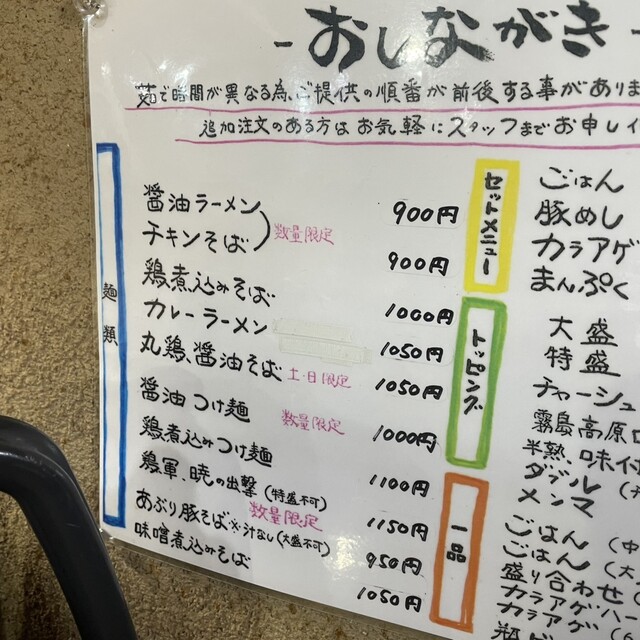 -おしながき-
麺で時間が異なる為、ご提供の順番が前後する事がありま
追加注文のある方はお気軽にスタッフまでお申し
麺類
醤油ラーメン 900円
チキンそば 数量限定 900円
鶏煮込みそば 1000円
カレーラーメン 1050円
丸鶏、醤油そば 土・日限定 1050円
醤油つけ麺 数量限定 1000円
鶏煮込みつけ麺 1100円
鶏軍、暁の出撃 (特盛不可) 1150円
あぶり豚そば ※汁なし(大盛不可) 数量限定 950円
味噌煮込みそば 1050円
セットメニュー
ごはん
豚めし
カラアゲ
まんぷく
トッピング
大盛
特盛
チャーシュ
霧島高原
半熟味付
ダブル
メンマ
一品
ごはん (中
ごはん (大
盛り合わせ (
カラアゲ
カラアゲ (
瓶